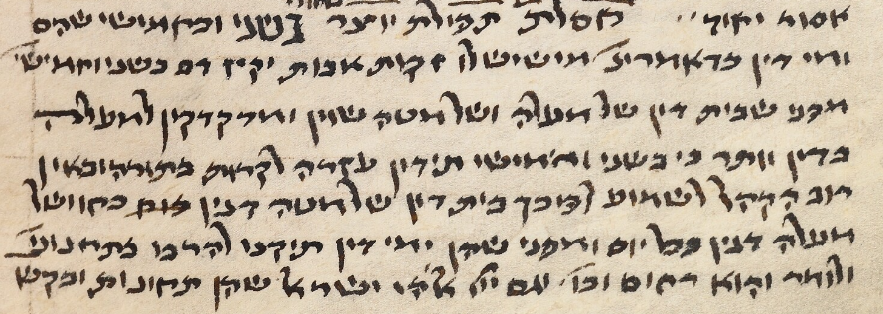 אסור יחיד אפלת תפילת יוצר בשני ובחמישי שהם
ימי דין כדאמרינ׳ מי שיש לו זכות אבות יקיז דם בשני וחמישי
מפני שבית דין של מעלה ושל מטה שוין ומדקדקין למעלה
בדין יותר כי בשני וחמישי תיקן עזרה לקרות בתורה ובאין
רוב הקהל לשמוע לפיכך בית דין של מטה דנין בהם כמו של
מעלה דנין בכל יום ומפני שהן ימי דין תיקנו להרבו בתחנוני׳
ולומר והוא רחום וכו׳ עם יי׳ אלהי ישראל שהן תחנות ובקש